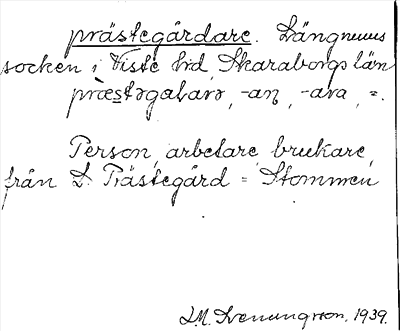 prästegårdare. Längnums
socken i Viste hd, Skaraborgs län
præstəgaɫarə, -an, -ara, =.
Person, arbetare, brukare,
från L. Prästegård = Stommen
L.M. Svenungsson. 1939.